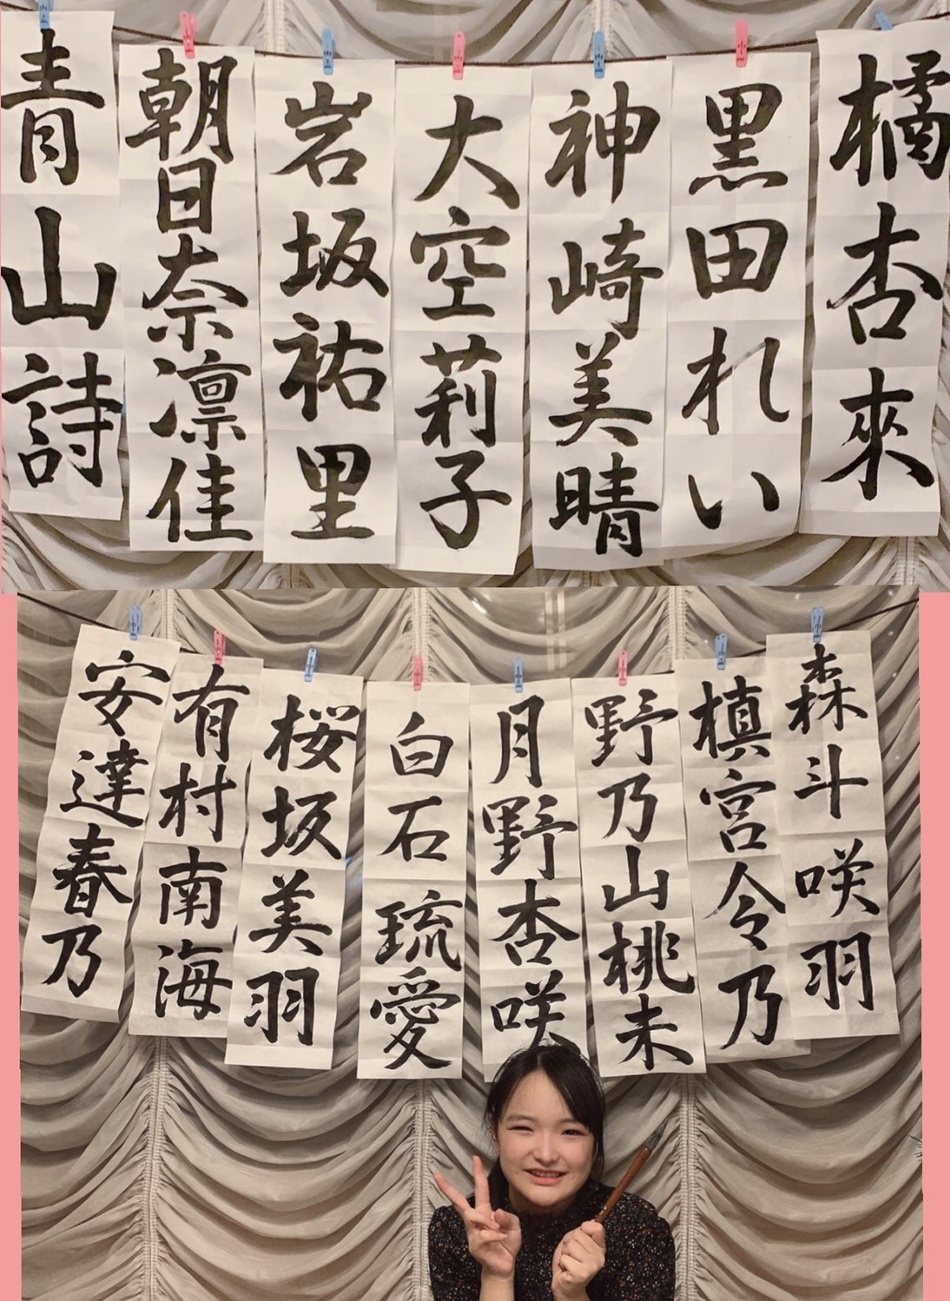 青山詩
朝日奈凛佳
岩坂祐里
大空莉子
神崎美晴
黒田れい
橘杏來
安達春乃
有村南海
桜坂美羽
白石琉愛
月野杏咲
野乃山桃未
槙宮令乃
森斗咲羽